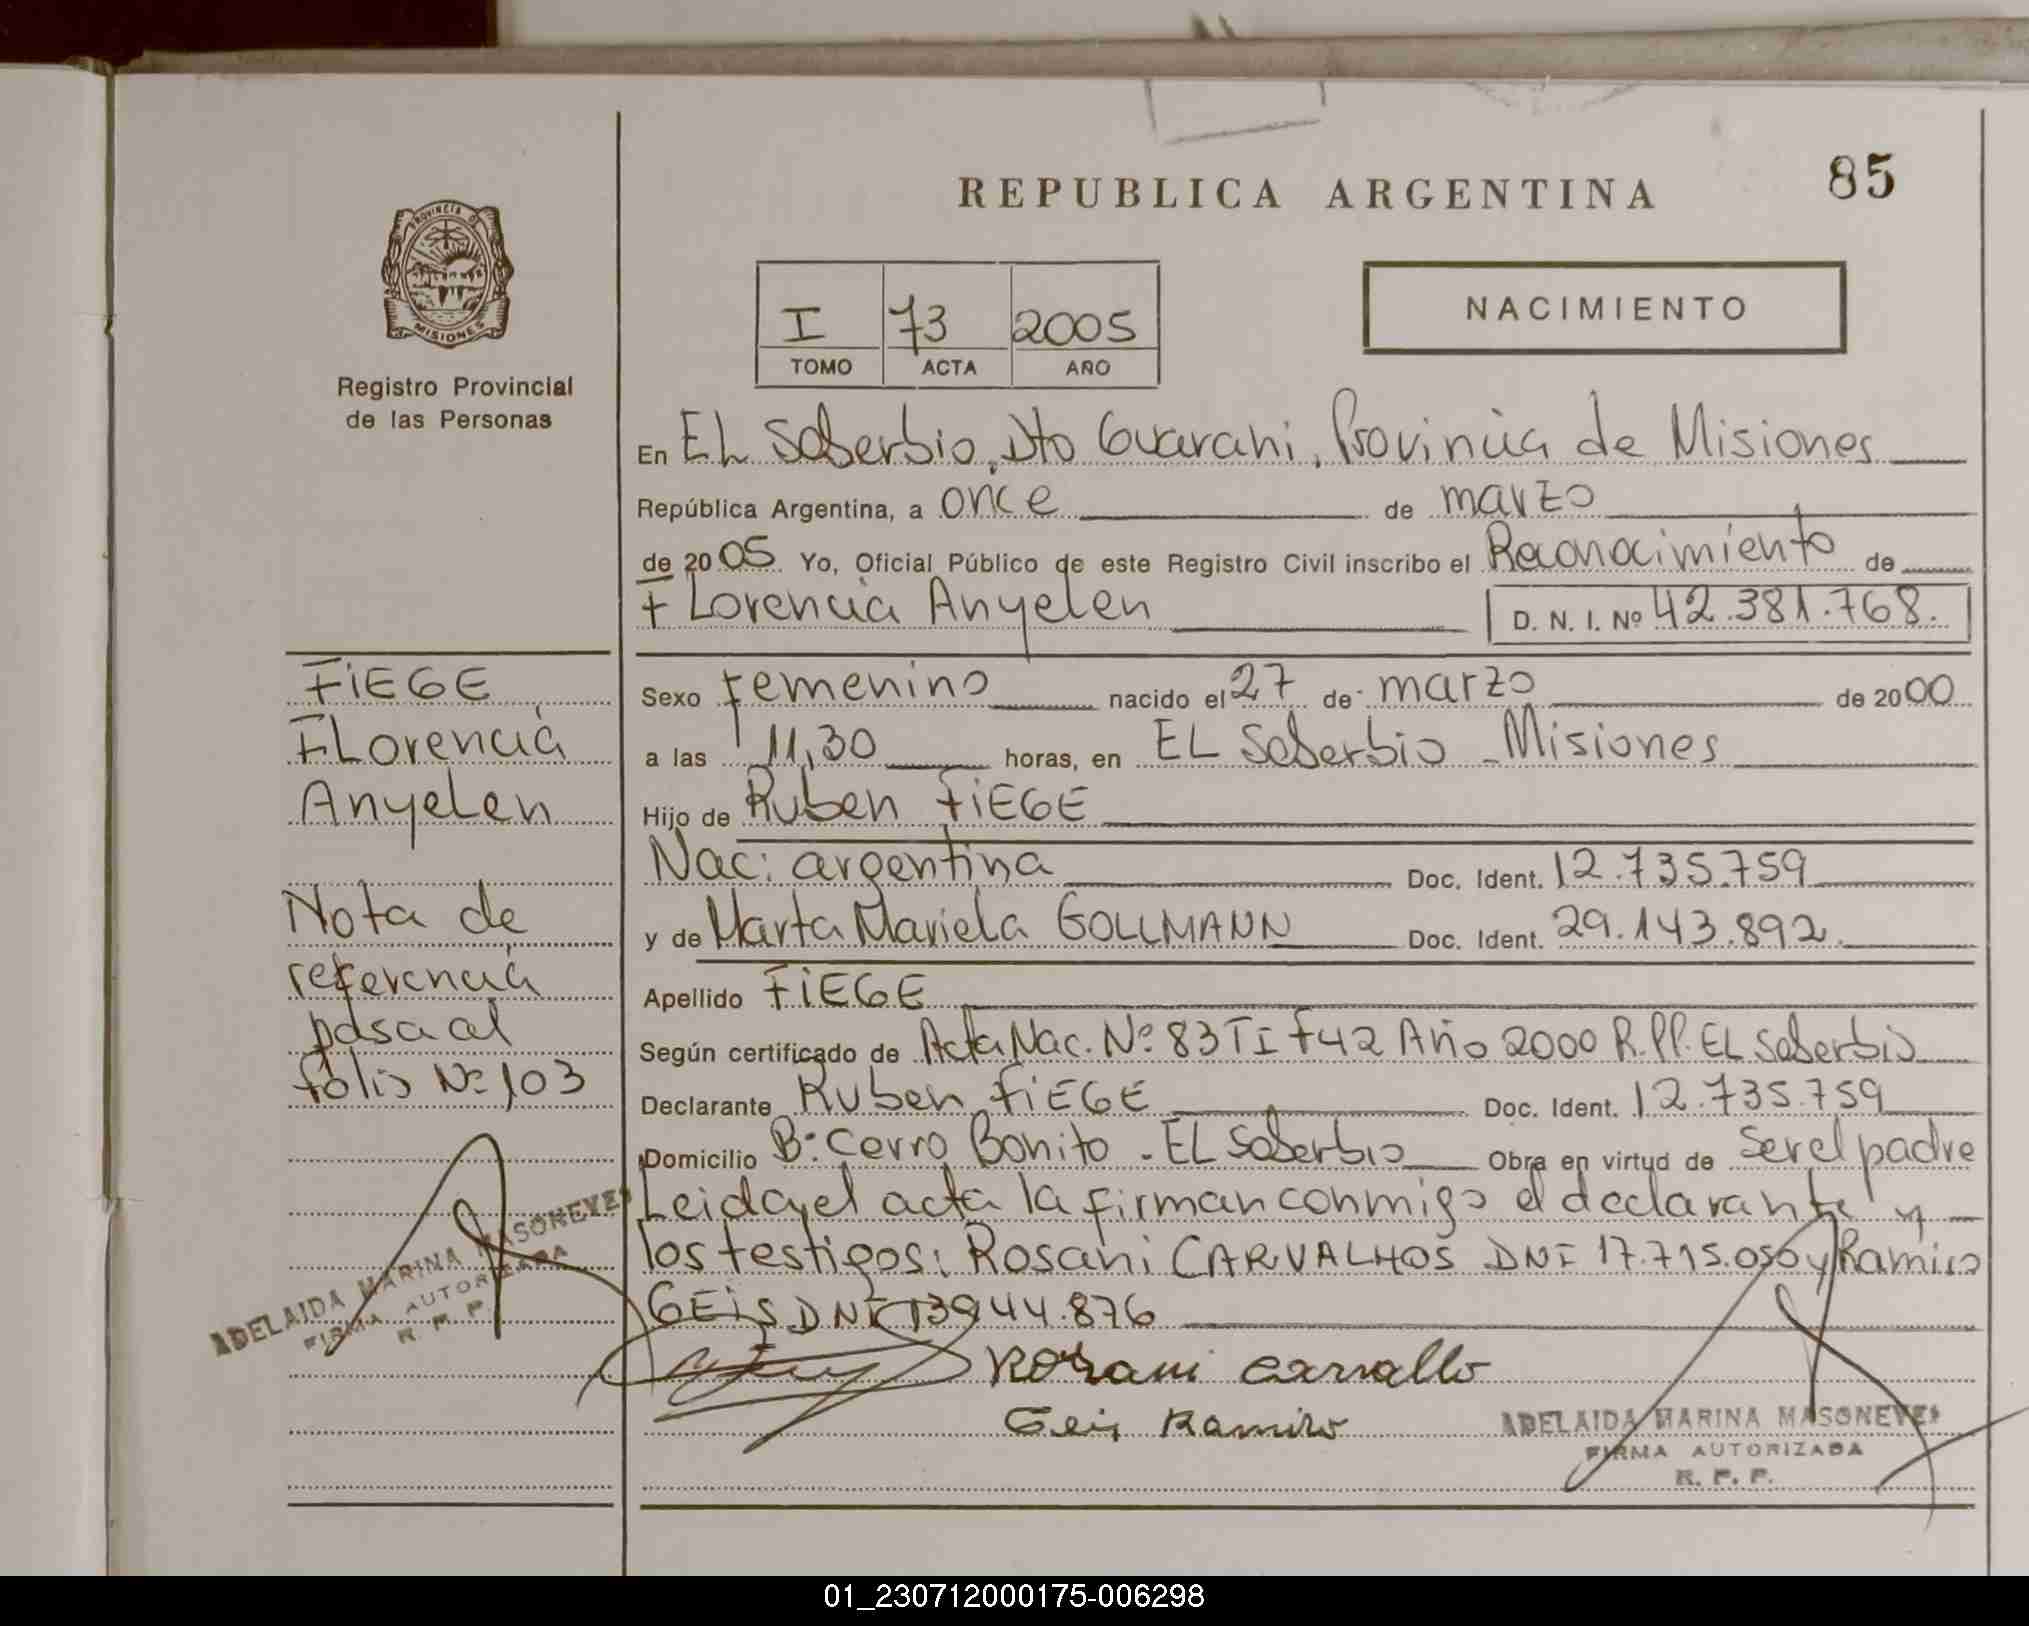 REPUBLICA ARGENTINA
85
PROVINCIA DE
MISIONES
Registro Provincial
de las Personas
I 73 2005
TOMO ACTA AÑO
NACIMIENTO
En EL Soberbio, Dto Guarani, Provincia de Misiones
República Argentina, a once de marzo
de 2005 Yo, Oficial Público de este Registro Civil inscribo el Reconocimiento de
FLorencia Anyelen D. N. I. Nº 42.381.768.
FiEGE
FLorencia
Anyelen
Nota de
referencia
pasa al
folio Nº 103
ADELAIDA MARINA MASONEVES
FIRMA AUTORIZADA
R. P. P.
Sexo Femenino nacido el 27 de marzo de 2000
a las 11,30 horas, en EL Soberbio - Misiones
Hijo de Ruben FiEGE
Nac: argentina Doc. Ident. 12.735.759
y de Marta Mariela GOLLMANN Doc. Ident. 29.143.892.
Apellido FiEGE
Según certificado de Acta Nac. Nº 83 TI F42 Año 2000 R.PP. EL Soberbio
Declarante Ruben FiEGE Doc. Ident. 12.735.759
Domicilio Bº Cerro Bonito - EL Soberbio Obra en virtud de ser el padre
Leida el acta la firman conmigo el declarante y
los testigos: Rosani CARVALHOS DNI 17.715.050 y Ramiro
GEiS DNI 13944.876
Rosani Carvallo
Geis Ramiro
ADELAIDA MARINA MASONEVES
FIRMA AUTORIZADA
R. P. P.
01_230712000175-006298